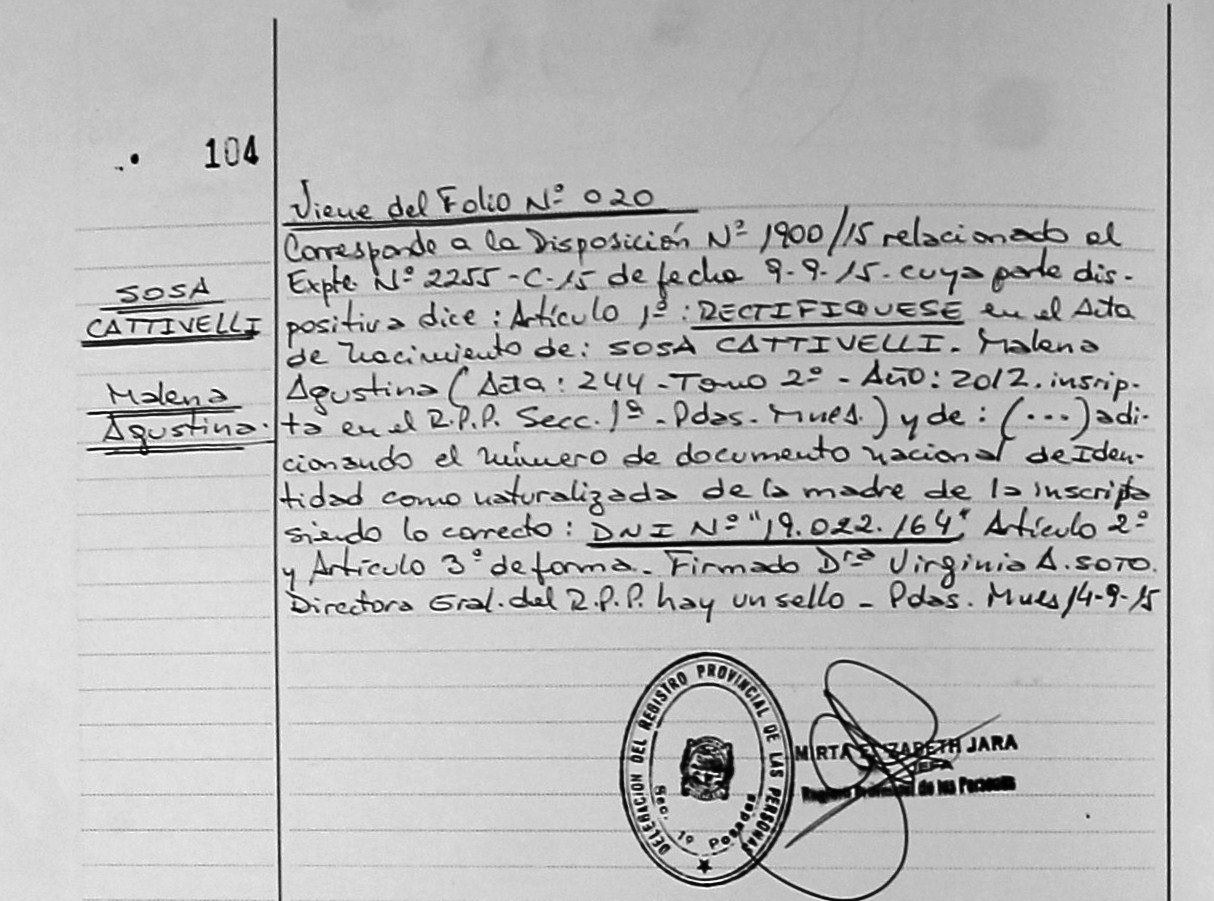 104
Viene del Folio Nº 020
Corresponde a la Disposición Nº 1900/15 relacionado al
Expte. Nº 2255-C-15 de fecha 9-9-15. cuya parte dis-
positiva dice: Artículo 1º: RECTIFIQUESE en el Acta
de nacimiento de: SOSA CATTIVELLI. Malena
Agustina (Acta: 244-Tomo 2º - Año: 2012. inscrip-
ta en el R.P.P. Secc. 1ª - Pdas. Mnes.) y de: (...) adi-
cionando el número de documento nacional de Iden-
tidad como naturalizada de la madre de la inscripta
siendo lo correcto: DNI Nº "19.022.164" Artículo 2º
y Artículo 3º de forma. Firmado Dra Virginia A. SOTO.
Directora Gral. del R.P.P. hay un sello - Pdas. Mnes 14-9-15
SOSA
CATTIVELLI
Malena
Agustina.
DELEGACION DEL REGISTRO PROVINCIAL DE LAS PERSONAS
Sec. 1ª Posadas
MIRTA ELIZABETH JARA
JEFA
Registro Provincial de las Personas